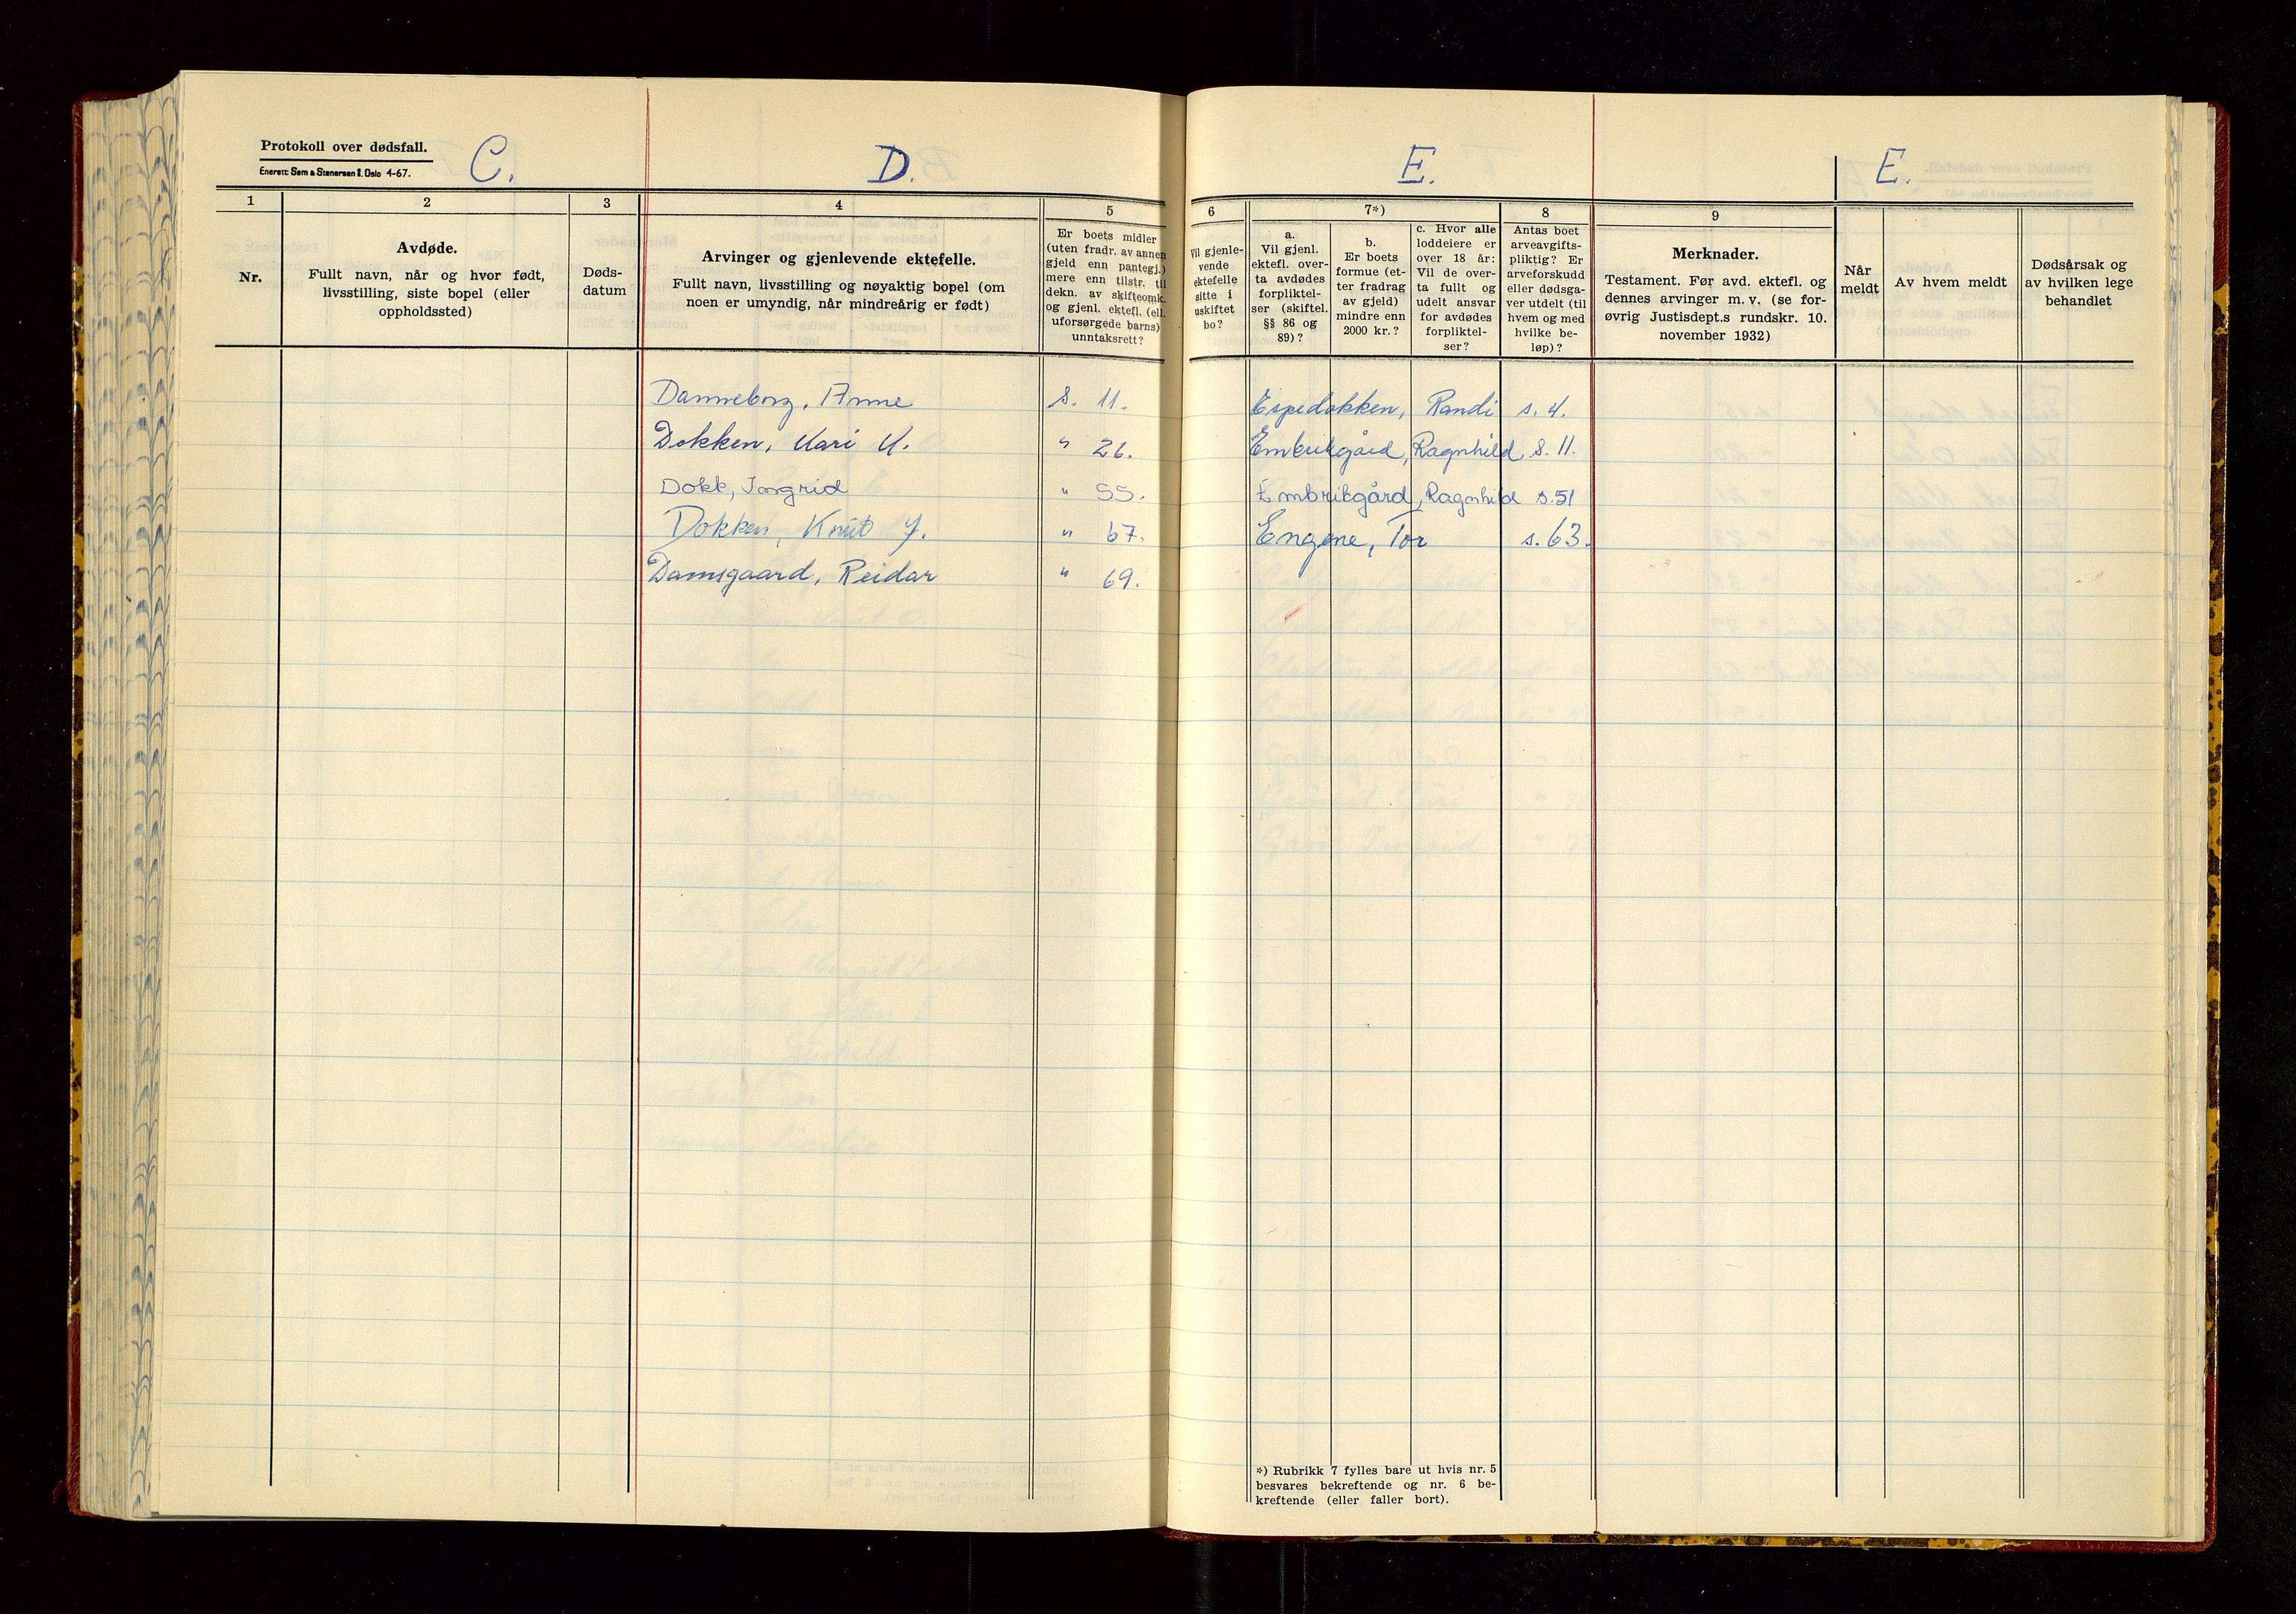 Protokoll over dødsfall.
Enerett: Sem & Stenersen A/S. Oslo 4-67.
C.
D.
1
2
3
4
5
Nr.
Avdøde.
Fullt navn, når og hvor født,
livsstilling, siste bopel (eller
oppholdssted)
Døds-
datum
Arvinger og gjenlevende ektefelle.
Fullt navn, livsstilling og nøyaktig bopel (om
noen er umyndig, når mindreårig er født)
Er boets midler
(uten fradr. av annen
gjeld enn pantegj.)
mere enn tilstr. til
dekn. av skifteomk.
og gjenl. ektef. (ell.
uforsørgede barns)
unntaksrett?
Danneborg, Anne s. 11.
Dokken, Kari K. " 26.
Dokk, Jorgrid " 55.
Dokken, Knut J. " 67.
Damsgaard, Reidar " 69.
E.
E.
6
7*)
8
9
Vil gjenle-
vende
ektefelle
sitte i
uskiftet
bo?
a.
Vil gjenl.
ektefl. over-
ta avdødes
forpliktel-
ser (skiftel.
§§ 86 og
89)?
b.
Er boets
formue (et-
ter fradrag
av gjeld)
mindre enn
2000 kr.?
c. Hvor alle
loddeiere er
over 18 år:
Vil de over-
ta fullt og
udelt ansvar
for avdødes
forpliktel-
ser?
Antas boet
arveavgifts-
pliktig? Er
arveforskudd
eller dødsga-
ver utdelt (til
hvem og med
hvilke be-
løp)?
Merknader.
Testament. Før avd. ektefl. og
dennes arvinger m. v. (se for-
øvrig Justisdept.s rundskr. 10.
november 1932)
Når
meldt
Av hvem meldt
Dødsårsak og
av hvilken lege
behandlet
Espedokken, Randi s. 4.
Embrikgård, Ragnhild s. 11.
Embrikgård, Ragnhild s. 51
Engene, Tor s. 63.
*) Rubrikk 7 fylles bare ut hvis nr. 5
besvares bekreftende og nr. 6 be-
kreftende (eller faller bort).